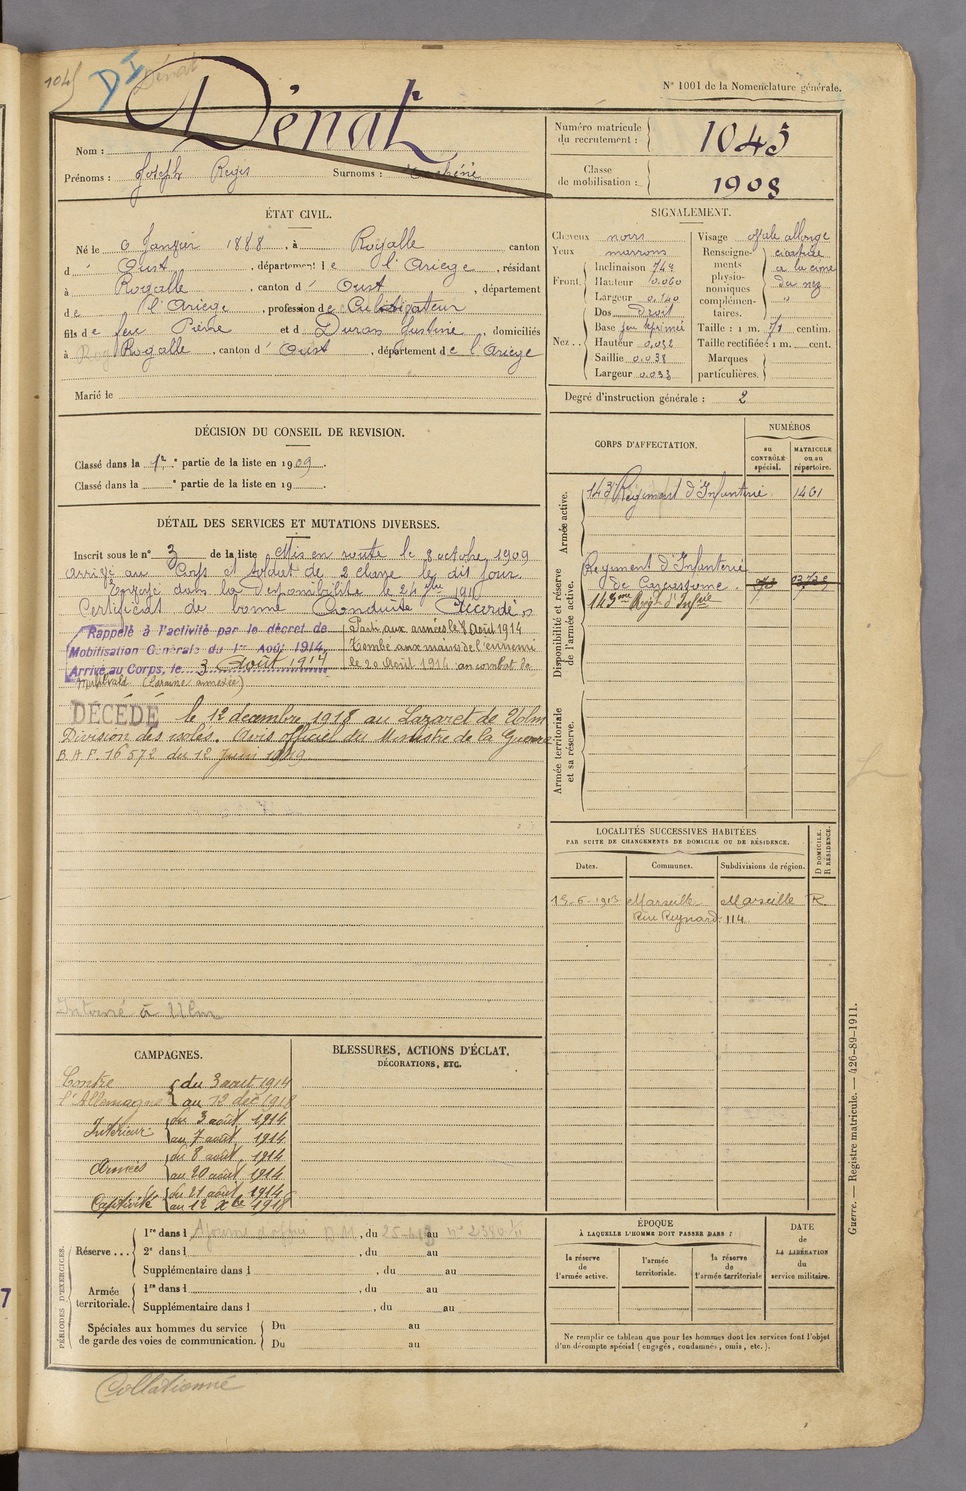 1045
DI
Dénat
N° 1001 de la Nomenclature générale.
Nom : Dénat
Prénoms : Joseph Regis Surnoms :
Numéro matricule du recrutement : 1045
Classe de mobilisation : 1908
ÉTAT CIVIL.
Né le 6 Janvier 1888, à Rogalle canton
d' Oust, département de l'Ariege, résidant
à Rogalle, canton d' Oust, département
de l'Ariege, profession de Cultivateur
fils de feu Pierre et d Duran Justine, domiciliés
à Rogalle, canton d' Oust, département de l'Ariege
Marié le
SIGNALEMENT.
Cheveux noirs
Yeux marrons
Front. Inclinaison
Hauteur 0.060
Largeur 0.140
Nez. Dos droit
Base
Hauteur 0.052
Saillie 0.038
Largeur 0.033
Visage ovale allongé
Renseignements physionomiques complémentaires. cicatrice a la cime du nez
Taille : 1 m. 71 centim.
Taille rectifiée : 1 m. cent.
Marques particulières.
Degré d'instruction générale : 2
DÉCISION DU CONSEIL DE REVISION.
Classé dans la 1re partie de la liste en 1909.
Classé dans la e partie de la liste en 19 .
CORPS D'AFFECTATION.
NUMÉROS
au CONTRÔLE spécial.
MATRICULE ou au répertoire.
Armée active.
143e Régiment d'Infanterie 1401
Disponibilité et réserve de l'armée active.
Régiment d'Infanterie
de Carcassonne.
143me Régt d'Infrie
Armée territoriale et sa réserve.
DÉTAIL DES SERVICES ET MUTATIONS DIVERSES.
Inscrit sous le n° 3 de la liste Mis en route le 8 octobre 1909
arrivé au Corps et soldat de 2 classe le dit jour
Envoyé dans la disponibilité le 24 7bre 1911
Certificat de bonne Conduite Accordé
Rappelé à l'activité par le décret de
Mobilisation Générale du 1er Août 1914,
Arrivé au Corps, le 3 Août 1914
Parti aux armées le 8 Août 1914
Tombé aux mains de l'ennemi
le 20 Août 1914 au combat de
(Lorraine annexée)
DÉCÉDÉ le 12 decembre 1918 au Lazaret de Ulm
Division des isolés. Avis officiel du Ministre de la Guerre
B.A.F. 16572 du 12 Juin 1919
Interné à Ulm
LOCALITÉS SUCCESSIVES HABITÉES
PAR SUITE DE CHANGEMENTS DE DOMICILE OU DE RÉSIDENCE.
D DOMICILE. R RÉSIDENCE.
Dates. Communes. Subdivisions de région.
Marseille Marseille R.
Rue Reynard 114
CAMPAGNES.
Contre l'Allemagne du 3 aout 1914
au 12 déc 1918
Intérieur du 3 août 1914
au 7 août 1914
Armées du 8 août 1914
au 20 août 1914
Captivité du 21 août 1914
au 12 Xbre 1918
BLESSURES, ACTIONS D'ÉCLAT,
DÉCORATIONS, ETC.
PÉRIODES D'EXERCICES.
Réserve...
1re dans l , du au
2e dans l , du au
Supplémentaire dans l , du au
Armée territoriale.
1re dans l , du au
Supplémentaire dans l , du au
Spéciales aux hommes du service de garde des voies de communication.
Du au
Du au
ÉPOQUE
À LAQUELLE L'HOMME DOIT PASSER DANS :
la réserve de l'armée active.
l'armée territoriale.
la réserve de l'armée territoriale
DATE
de
LA LIBÉRATION
du
service militaire.
Ne remplir ce tableau que pour les hommes dont les services font l'objet
d'un décompte spécial (engagés, condamnés, omis, etc.).
Guerre. — Registre matricule. — 426-89-1911.
Collationné
7